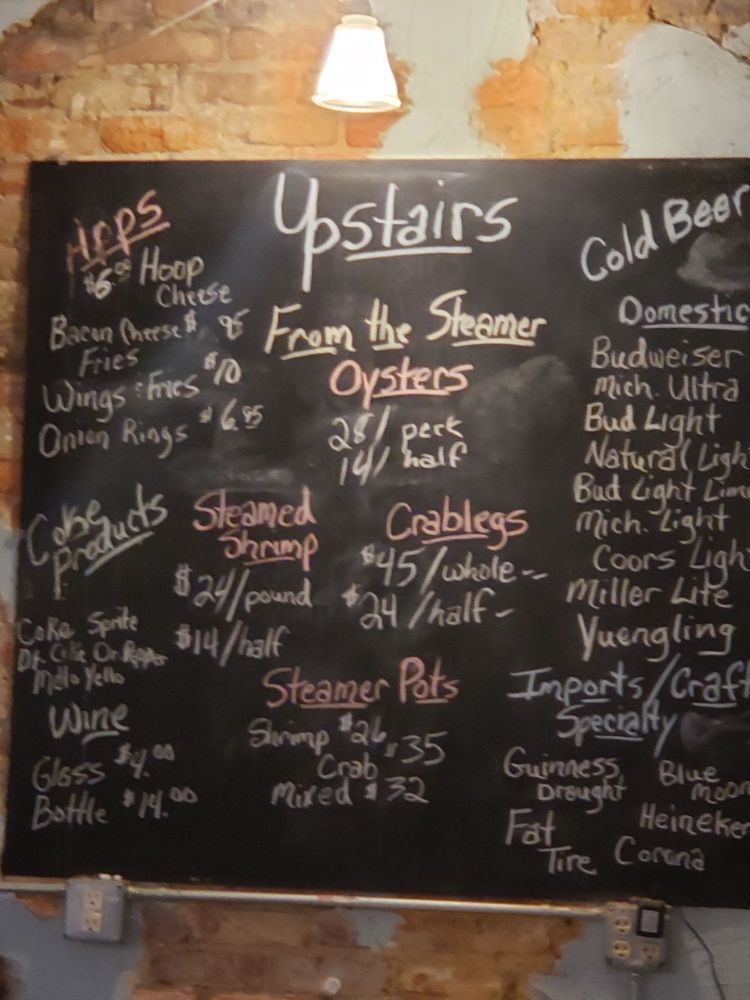 Upstairs
Apps
$6.00 Hoop
Cheese
Bacon Cheese $ 95
Fries
Wings & Fries $10
Onion Rings $6.95
From the Steamer
Oysters
28/ peck
14/ half
Coke
Products
Coke Sprite
Dt. Coke Dr. Pepper
Mello Yello
Wine
Glass $4.00
Bottle $14.00
Steamed
Shrimp
$24/pound
$14/half
Crablegs
$45/whole--
$24/half-
Steamer Pots
Shrimp $26
Crab $35
Mixed $32
Cold Beer
Domestic
Budweiser
Mich. Ultra
Bud Light
Natural Ligh
Bud Light Lim
Mich. Light
Coors Ligh
Miller Lite
Yuengling
Imports/Craft
Specialty
Guinness
Draught
Blue
moon
Fat
Tire
Heineken
Corona